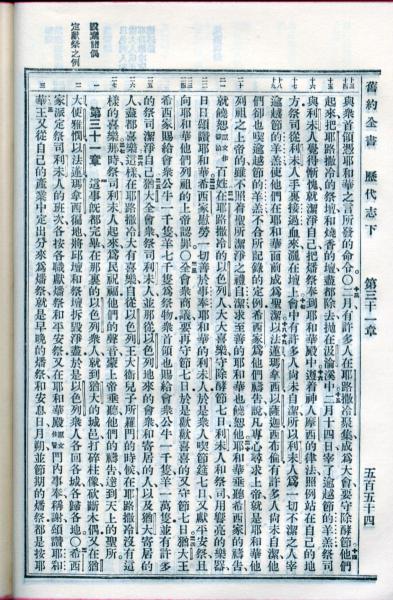 舊約全書 歷代志下 第三十一章 五百五十四
與衆首領憑耶和華之言所發的命令○二月有許多人在耶路撒冷聚集成爲大會要守除酵節他們
起來把耶路撒冷的祭壇和燒香的壇盡都除去抛在汲淪溪中二月十四日宰了逾越節的羊羔祭司
與利未人覺得慚愧就潔淨自己把燔祭奉到耶和華殿中遵着神人摩西的律法照例站在自己的地
方祭司從利未人手裏接過血來灑在壇上會中有許多人尚未自潔所以利未人爲一切不潔之人宰
逾越節的羊羔使他們在耶和華面前成爲聖潔以法蓮瑪拿西以薩迦西布倫有許多人尚未自潔他
們卻也喫逾越節的羊羔不合所記錄的定例希西家爲他們禱告說凡專心尋求上帝就是耶和華他
列祖之上帝的雖不照着聖所潔淨之禮自潔求至善的耶和華也饒恕他耶和華垂聽希西家的禱告
就饒恕百姓在耶路撒冷的以色列人大大喜樂守除酵節七日利未人和祭司用響亮的樂器
日日頌讚耶和華希西家慰勞一切善於事奉耶和華的利未人於是衆人喫節筵七日又獻平安祭且
向耶和華他們列祖的上帝認罪○全會衆商議要再守節七日於是歡歡喜喜的又守節七日猶大王
希西家賜給會衆公牛一千隻羊七千隻爲祭物衆首領也賜給會衆公牛一千隻羊一萬隻並有許多
的祭司潔淨自己猶大全會衆祭司利未人並那從以色列地來的會衆和寄居的人以及猶大寄居的
人盡都喜樂這樣在耶路撒冷大有喜樂自從以色列王大衛兒子所羅門的時候在耶路撒冷沒有這
樣的喜樂那時祭司利未人起來爲民祝福他們的聲音蒙上帝垂聽他們的禱告達到天上的聖所
第三十一章 這事既都完畢在那裏的以色列衆人就到猶大的城邑打碎柱像砍斷木偶又在猶
大便雅憫以法蓮瑪拿西遍地將邱壇和祭壇拆毀淨盡於是以色列衆人各回各城各歸各地○希西
家派定祭司利未人的班次各按各職獻燔祭和平安祭又在耶和華殿門內事奉稱謝頌讚耶和
華王又從自己的產業中定出分來爲燔祭就是早晚的燔祭和安息日月朔並節期的燔祭都是按耶
毀滅諸偶
定獻祭之例